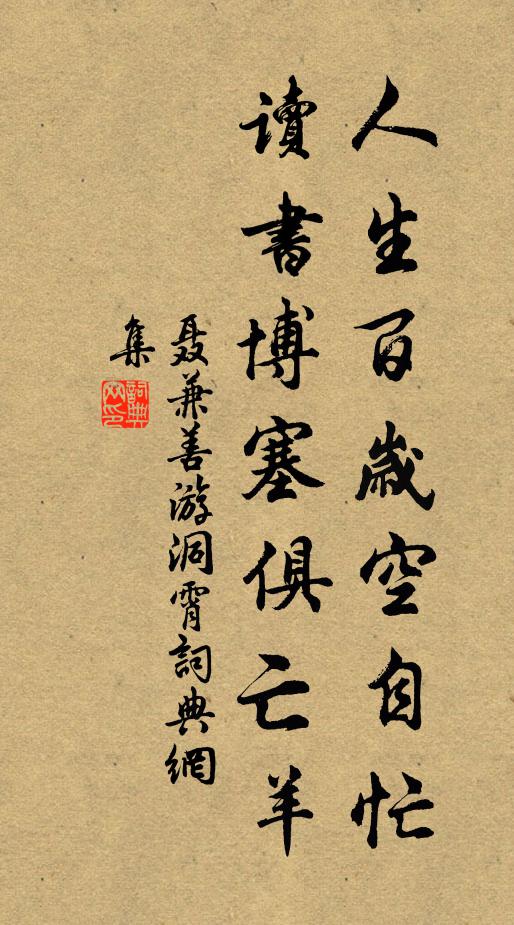 人生百歲空自忙
讀書博塞俱亡羊
聂兼善游洞霄詞典網
集
詞典网印